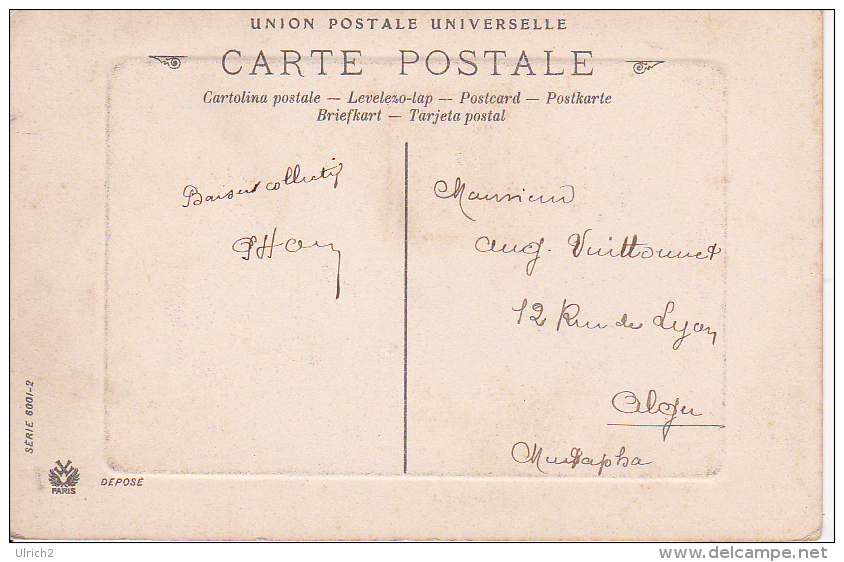 UNION POSTALE UNIVERSELLE
CARTE POSTALE
Cartolina postale — Levelezo-lap — Postcard — Postkarte
Briefkart — Tarjeta postal
Baiser collectif
Monsieur
Aug. Vuittonnet
12 Rue de Lyon
Alger
Mustapha
SÉRIE 6001-2
PARIS
DÉPOSÉ
Ulrich2
www.delcampe.net